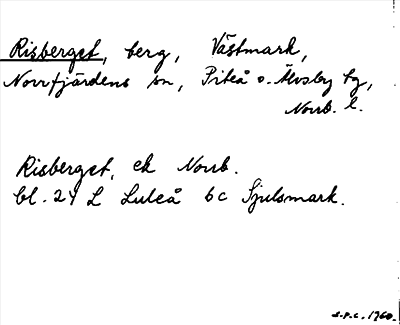 Risberget, berg, Västmark,
Norrfjärdens sn, Piteå o. Älvsby tg,
Norrb. l.
Risberget, ek Norrb.
bl. 24 L Luleå 6c Sjulsmark.
S.P.C. 1960.